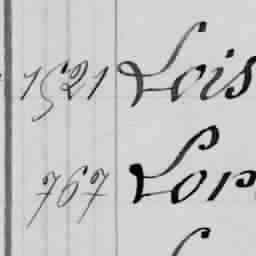 1521 Lois
767 Lor